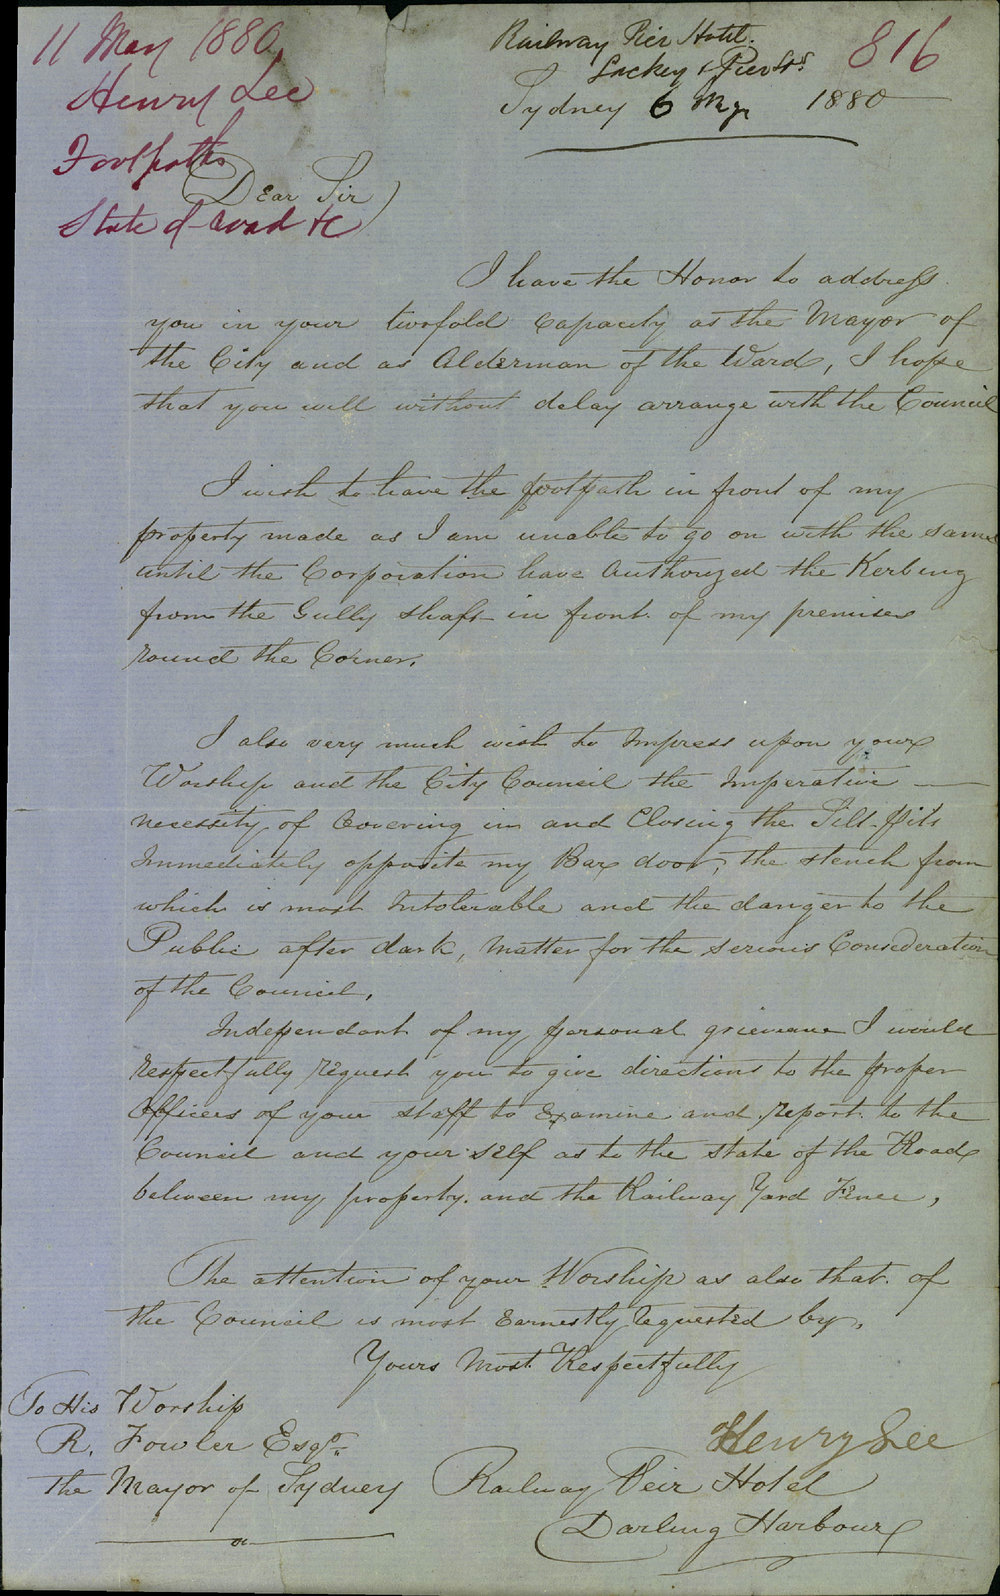 11 May 1880
Henry Lee
Footpaths
State of road &c
816
Railway Pier Hotel.
Lackey & Pier Sts.
Sydney 6 My 1880
Dear Sir
I have the Honor to address
you in your twofold capacity as the Mayor of
the City and as Alderman of the Ward, I hope
that you will without delay arrange with the Council
I wish to have the footpath in front of my
property made as I am unable to go on with the same
until the Corporation have Authorized the Kerbing
from the Gully shaft in front of my premises
round the Corner.
I also very much wish to Impress upon your
Worship and the City Council the Imperative
necessity of Covering in and Closing the Silt-Pits
Immediately opposite my Bar door, the stench from
which is most Intolerable and the danger to the
Public after dark, matter for the serious Consederation
of the Council,
Independant of my personal grievance I would
respectfully request you to give directions to the proper
Officers of your staff to Examine and report. to the
Council and your self as to the state of the Road
between my property. and the Railway Yard Fence,
The attention of your Worship as also that. of
the Council is most Earnestly requested by,
Yours Most Respectfully
Henry Lee
Railway Peir Hotel
Darling Harbour
To His Worship
R. Fowler Esqr.
the Mayor of Sydney